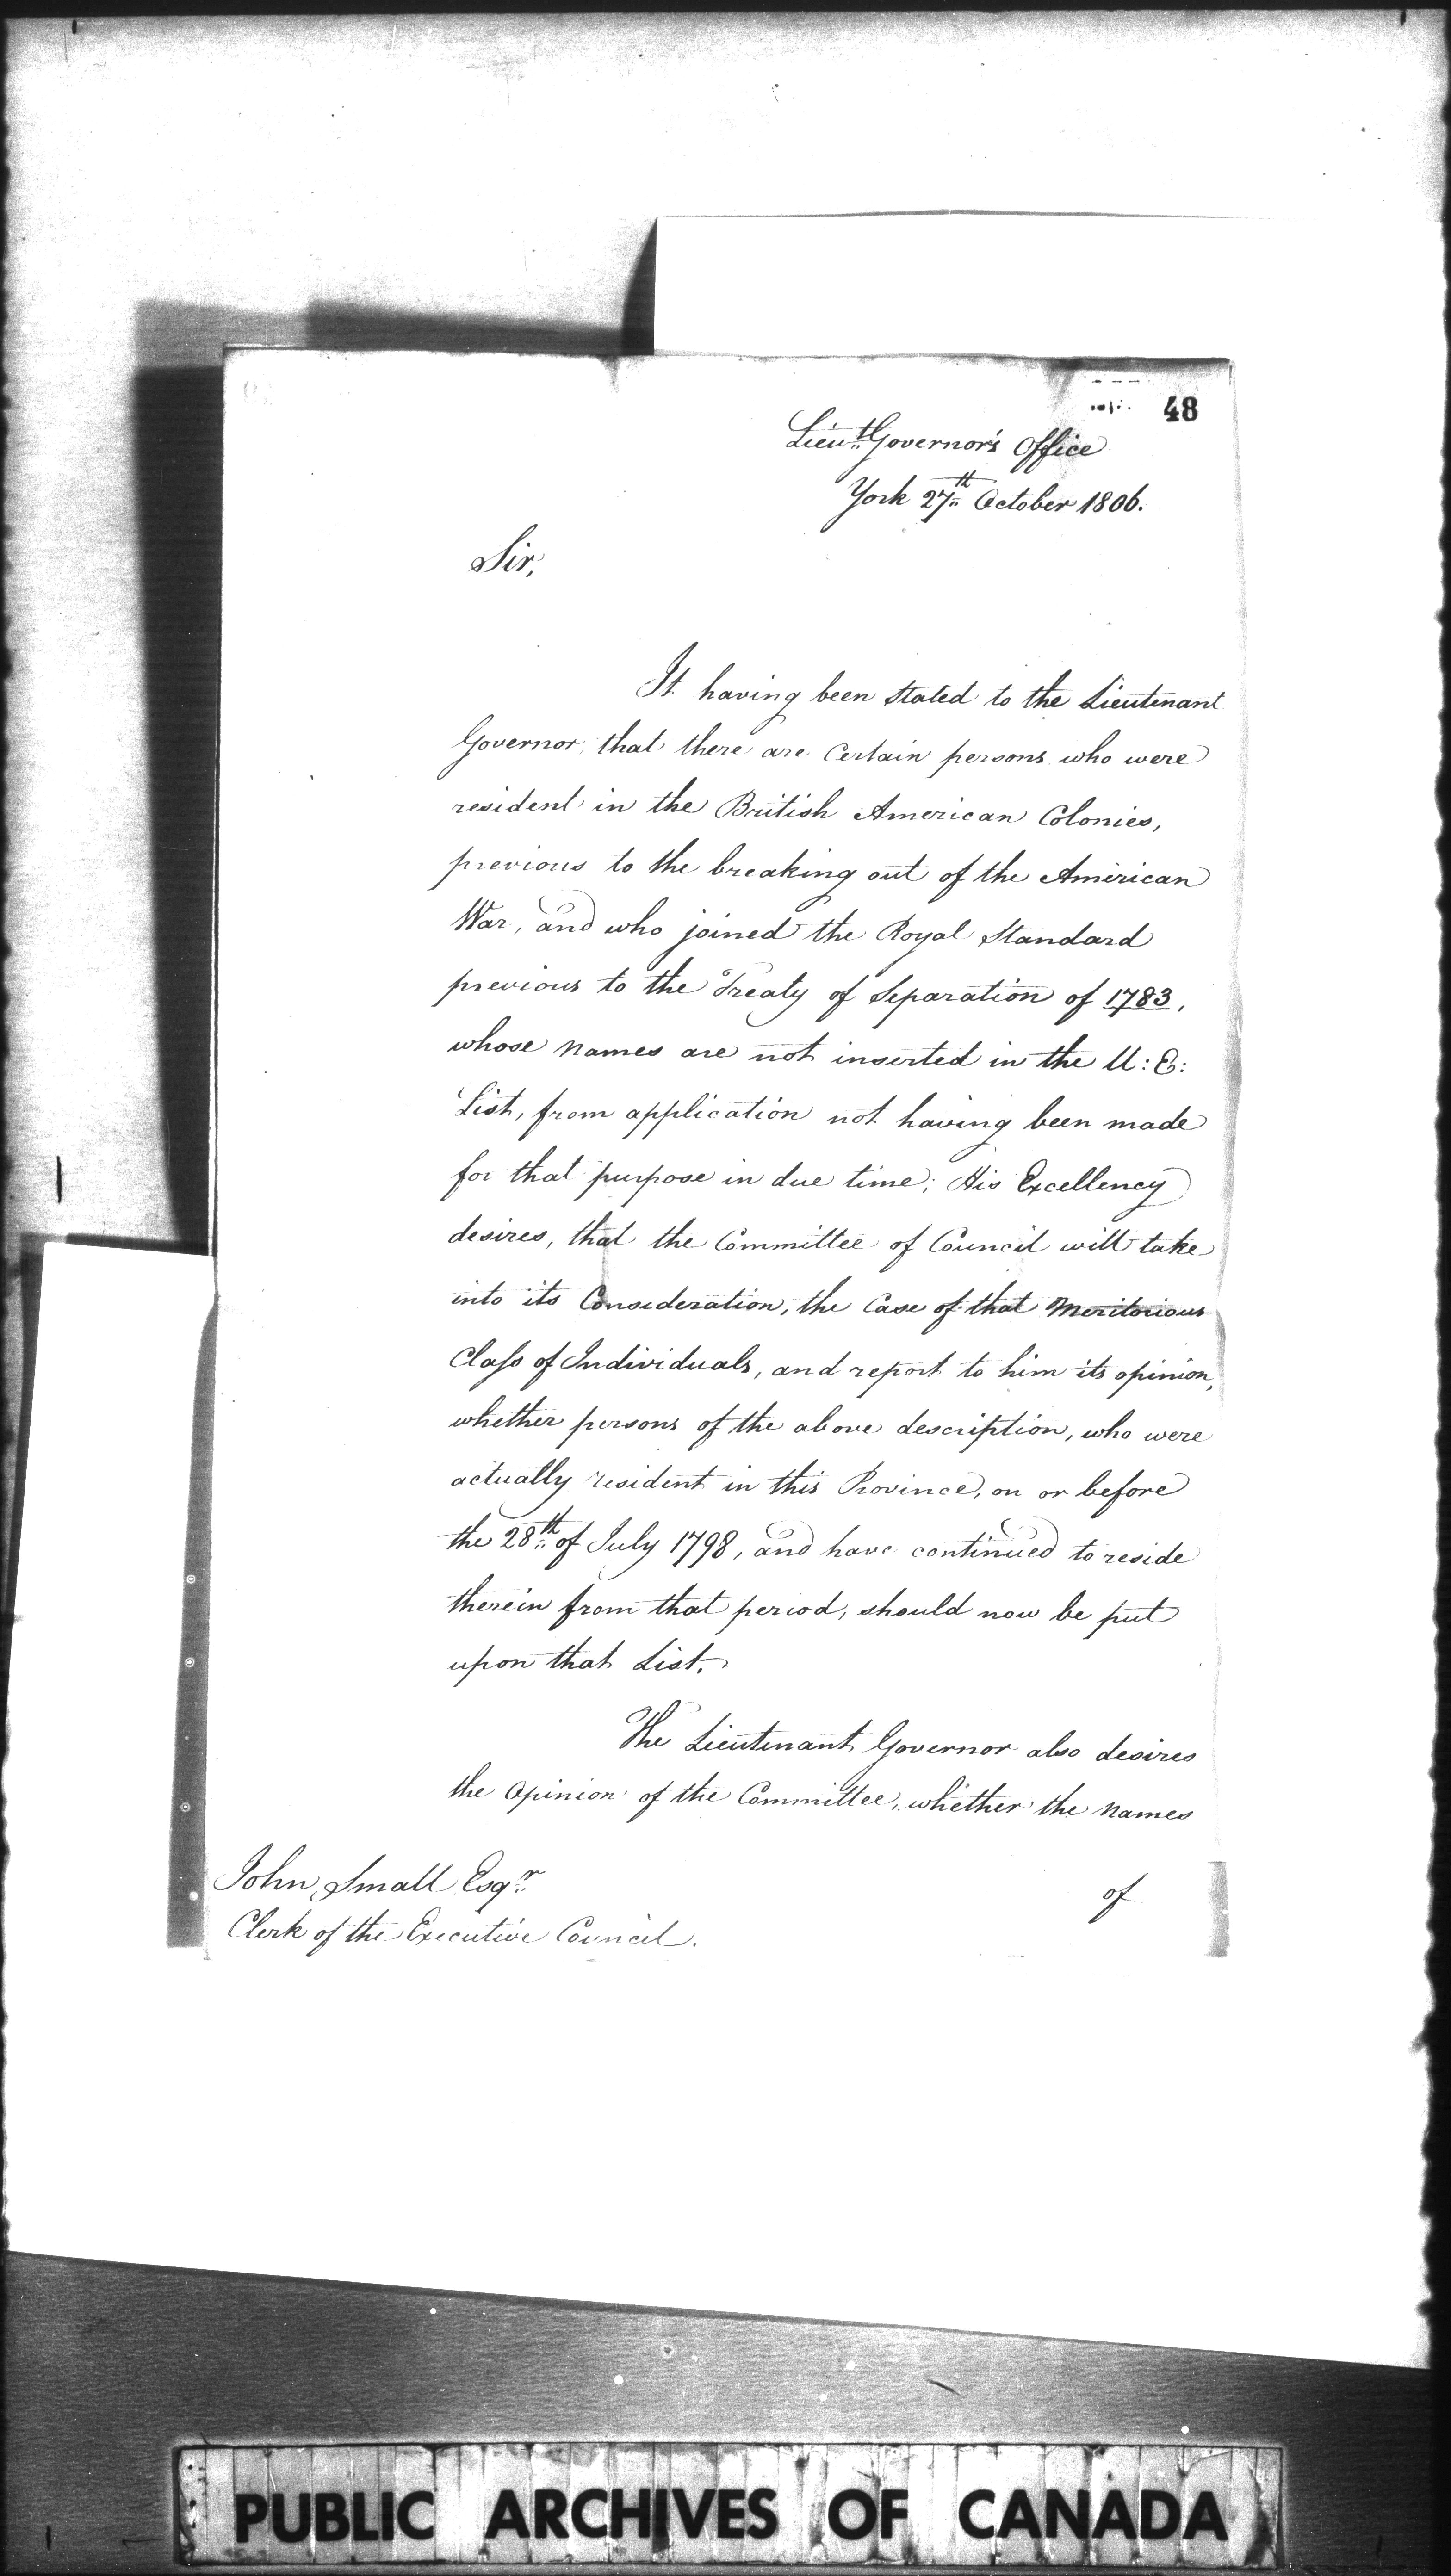 48
Lieut. Governor's Office
York 27th October 1806.
Sir,
It having been stated to the Lieutenant
Governor, that there are Certain persons who were
resident in the British American Colonies,
previous to the breaking out of the American
War, and who joined the Royal Standard
previous to the Treaty of Separation of 1783,
whose names are not inserted in the U:E:
List, from application not having been made
for that purpose in due time; His Excellency
desires, that the Committee of Council will take
into its Consideration, the Case of that Meritorious
Class of Individuals, and report to him its opinion,
whether persons of the above description, who were
actually resident in this Province, on or before
the 28th of July 1798, and have continued to reside
therein from that period, should now be put
upon that List.
The Lieutenant Governor also desires
the Opinion of the Committee, whether the names
of
John Small Esqr.
Clerk of the Executive Council.
PUBLIC ARCHIVES OF CANADA